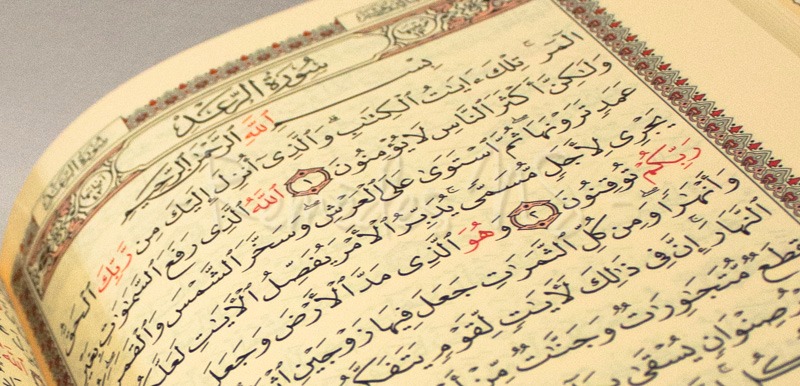 سُورَةُ الرَّعْدِ
سُورَةُ الرَّعْدِ
بِسْمِ ٱللَّهِ ٱلرَّحْمَٰنِ ٱلرَّحِيمِ
الٓمٓر تِلْكَ ءَايَٰتُ ٱلْكِتَٰبِ وَٱلَّذِىٓ أُنزِلَ إِلَيْكَ مِن رَّبِّكَ ٱلْحَقُّ
وَلَٰكِنَّ أَكْثَرَ ٱلنَّاسِ لَا يُؤْمِنُونَ ١ ٱللَّهُ ٱلَّذِى رَفَعَ ٱلسَّمَٰوَٰتِ بِغَيْرِ
عَمَدٍ تَرَوْنَهَا ثُمَّ ٱسْتَوَىٰ عَلَى ٱلْعَرْشِ وَسَخَّرَ ٱلشَّمْسَ وَٱلْقَمَرَ
يَجْرِى لِأَجَلٍ مُّسَمًّى يُدَبِّرُ ٱلْأَمْرَ يُفَصِّلُ ٱلْءَايَٰتِ لَعَلَّكُم
رَبِّكُمْ تُوقِنُونَ ٢ وَهُوَ ٱلَّذِى مَدَّ ٱلْأَرْضَ وَجَعَلَ
وَأَنْهَٰرًا وَمِن كُلِّ ٱلثَّمَرَٰتِ جَعَلَ فِيهَا زَوْجَيْنِ
ٱلنَّهَارَ إِنَّ فِى ذَٰلِكَ لَءَايَٰتٍ لِّقَوْمٍ
قِطَعٌ مُّتَجَٰوِرَٰتٌ وَجَنَّٰتٌ مِّنْ
صِنْوَانٍ يُسْقَىٰ